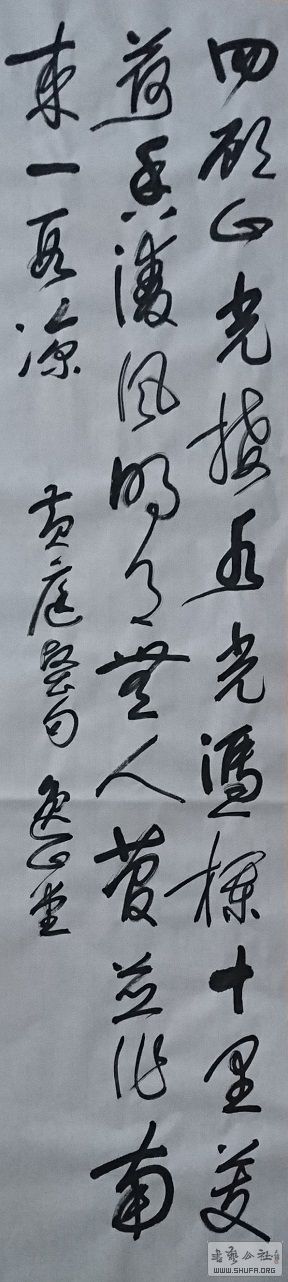 四顾山光接水光憑欄十里芰
荷香清风明月無人管並作南
来一段凉
黄庭堅句
堂
书艺公社
WWW.SHUFA.ORG